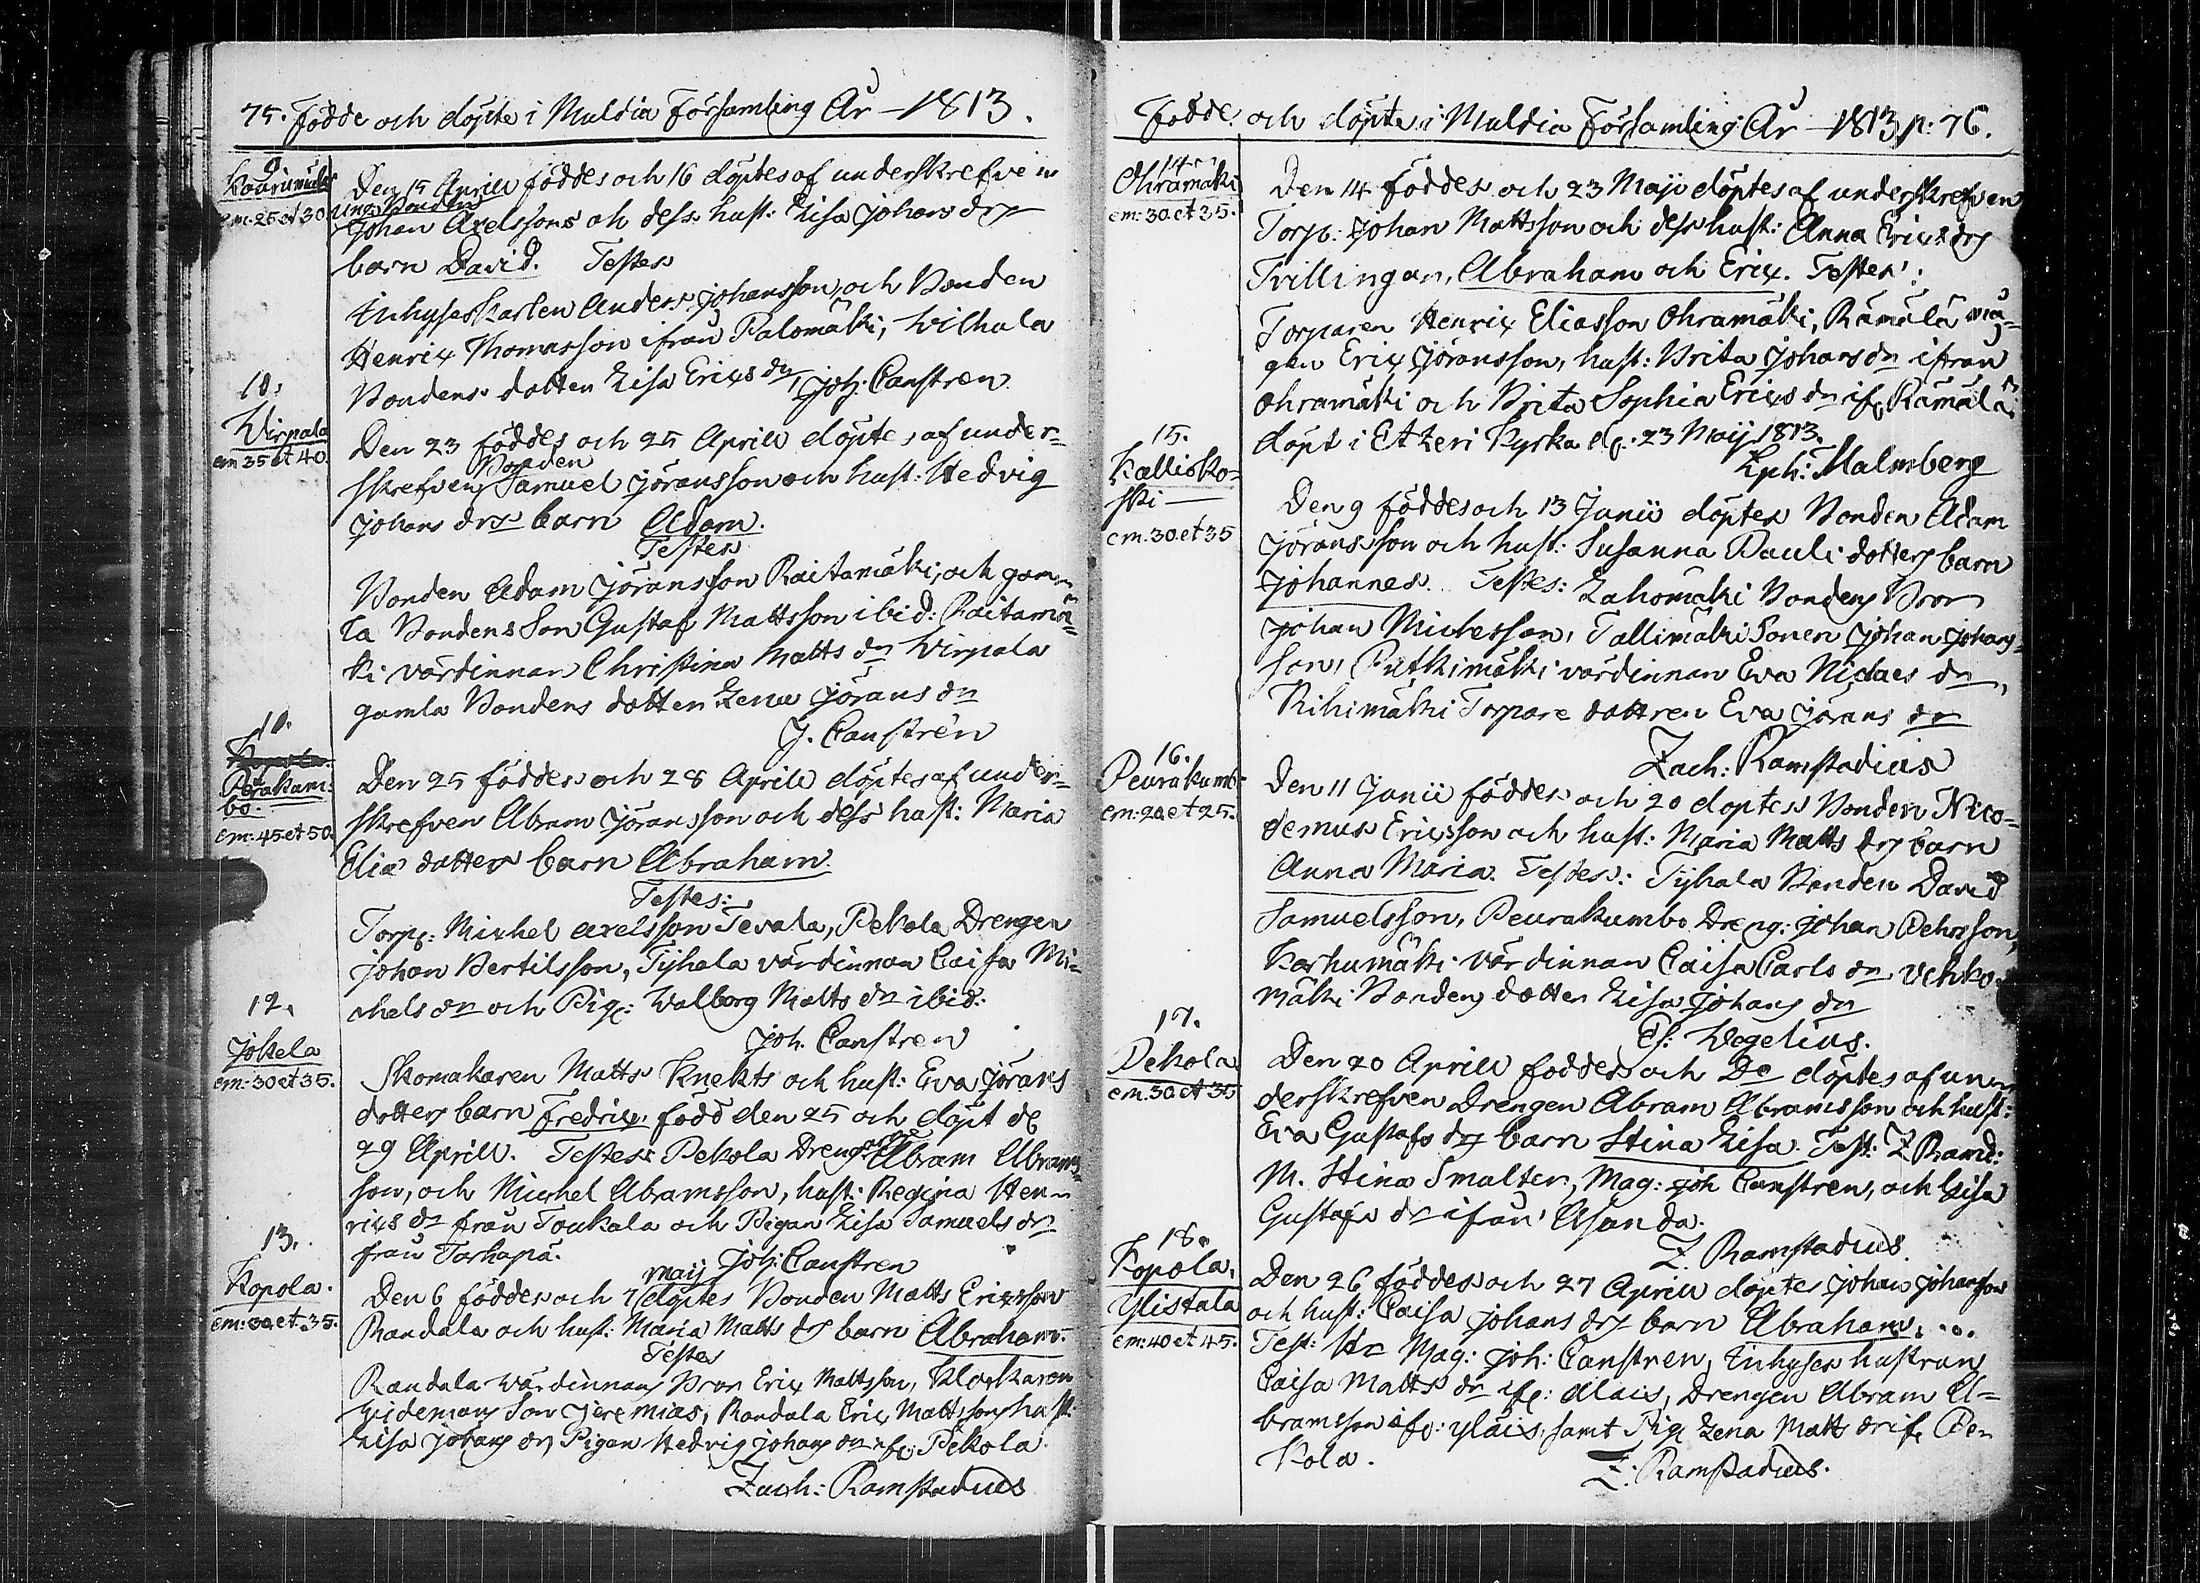 75. Födde och döpte i Multia Församling År - 1813.
9.
em: 25 et 30
Den 15 Aprill föddes och 16 döptes af underskrefven
unga Bonden
Johan Axelssons ok dess hust: Lisa Johans drs
barn David. Testes
Inhyses Karlen Anders Johansson, och Bonden
Henrix Thomasson ifrån Palomäki, Wilhula
Bondens dotten Lisa Erixs dr, Joh: Canstren
10.
Wirpala
em 35 et 40.
Den 23 föddes och 25 Aprill döptes af under=
Bonden
skrefven Samuel Jöransson och hust: Hedvig
Johans drs barn Adam.
Testes
Bonden Adam Jöransson Raitamäki, och gam=
la Bondens Son Gustaf Mattsson ibid: Raitamä=
ki värdinnan Christina Matts dr Wirpala
gamla Bondens dotten Lena Jörans dr
J. Canstrén
10.
Peurakum:
bo.
em: 45 et 50.
Den 25 föddes och 28 Aprill döptes af under=
skrefven Abram Jöransson och dess hust: Maria
Elias dotters barn Abraham.
Testes:
Torp: Michel Axelsson Tevala, Pekola Drengen
Johan Bertilsson, Tyhala värdinnan Caisa Mi=
chels dr och Pig: Walborg Matts dr ibid.
Joh. Canstren
12.
Jokela
em: 30 et 35.
Skomakaren Matts Knekts och hust: Eva Jörans
dotters barn Fredrix, född den 25 och döpt d:
29 Aprill. Testes: Pekola Drengarne Abram Abrams=
son, och Michel Abramsson, hust: Regina Hen=
rixs dr från Toukala och Pigan Lisa Samuels dr
från Tarhapä.
Joh: Canstren
13.
Kopola.
em: 30 et 35.
maij
Den 6 föddes och 7 döptes Bonden Matts Erixsson
Randala och hust: Maria Matts drs barn Abraham.
Testes
Randala Wärdinnans Bror Erix Mattsson, Klockaren
Widemans Son Jeremias, Randala Erix Mattsons hust:
Lisa Johans dr, Pigan Hedvig Johans dr ifr: Pekola.
Zach: Ramstadius
Födde och döpte i Multia Församling År - 1813 p: 76.
14
Ohramäki
em: 30 et 35.
Den 14 föddes och 23 Maji döptes af underskrefven
Torp: Johan Mattsson och dess hust: Anna Erixs drs
Tvillingar, Abraham och Erix. Testes:
Torparen Henrix Eliasson Ohramäki, Rämälä må=
gen Erix Jöransson, hust: Brita Johans dr ifrån
Ohramäki och Brita Sophia Erixs dr ifr Rämälä
döpt i Etzeri Kyrka d: 23 Maij 1813.
Eph: Malmberg
15.
Kallisko=
ski
em: 30 et 35
Den 9 föddes och 13 Junii döptes Bonden Adam
Jöransson och hust: Susanna Pauli dotters barn
Johannes. Testes: Lahomäki Bondens Bror
Johan Michesson, Tallimäki Sonen Johan Johans=
son, Putkimäki värdinnan Eva Niclaes dr,
Rihimäki Torpare dottren Eva Jörans dr
Zach: Ramstadius
16.
Peurakumb
em: 20 et 25.
Den 11 Junii föddes och 20 döptes Bonden Nico=
demus Erixsson och hust: Maria Matts drs barn
Anna Maria. Testes: Tyhala Bonden David
Samuelsson, Peurakumbo Dreng: Johan Pehrsson,
Karhumäki värdinnan Caisa Carls dr, Vehko=
mäki Bondens dotter Lisa Johans dr
Es: Wegelius.
17.
Pekola
em: 30 et 35
Den 20 Aprill föddes och Do döptes af un=
derskrefven Drengen Abram Abramsson och hust:
Eva Gustafs drs barn Stina Lisa. Test: Z Ramst:
M. Stina Smalter, Mag: Joh Canstren, och Lisa
Gustafs dr ifrån Asanda.
Z. Ramstadius.
18.
Kopola,
Ylistala
em: 40 et 45.
Den 26 föddes och 27 Aprill döptes Johan Johansson
och hust: Caisa Johans drs barn Abraham,
Test: Hr Mag: Joh: Canstren, Inhyses hustrun
Caisa Matts dr ifr: Alais, Drengen Abram A=
bramsson ifr: Yläis, samt Pig Lena Matts dr ifr Pe=
kola.
Z: Ramstadius.